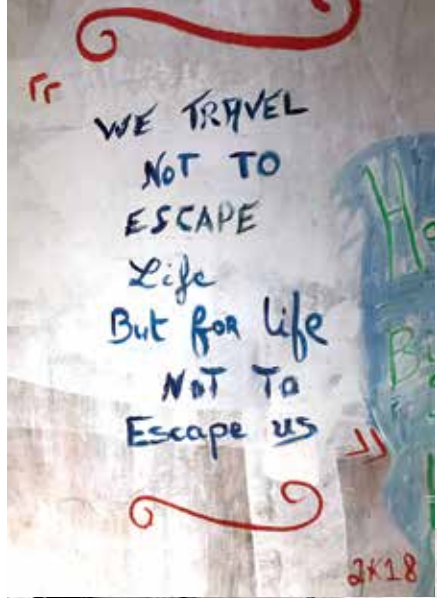 "
WE TRAVEL
NOT TO
ESCAPE
Life
But foR life
NOT To
Escape us
"
2K18